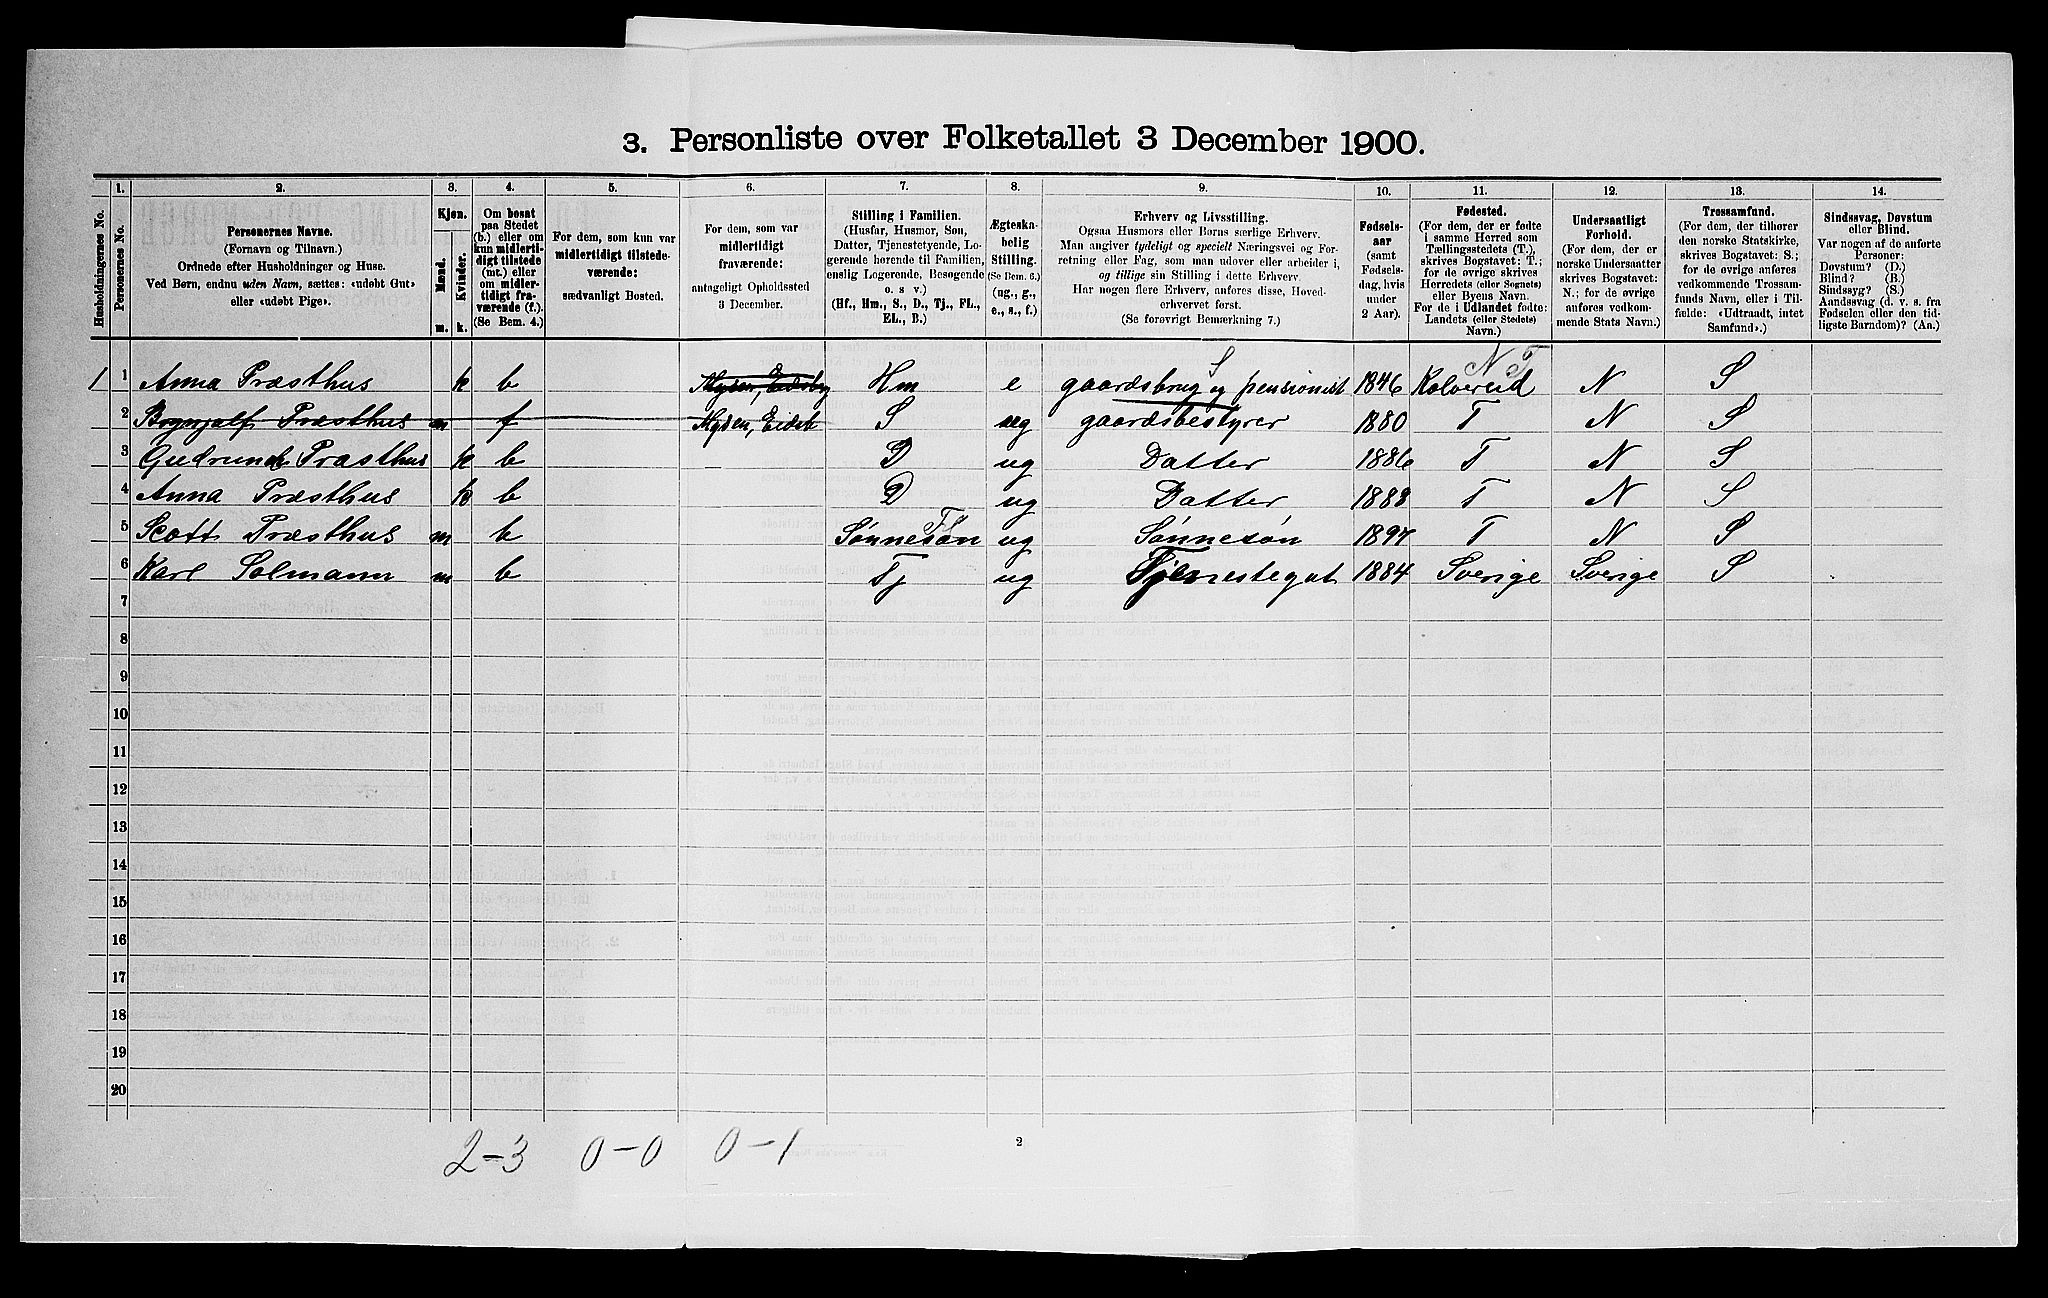 3. Personliste over Folketallet 3 December 1900.
Husholdningernes No.
1. Personernes No.
2. Personernes Navne.
(Fornavn og Tilnavn.)
Ordnede efter Husholdninger og Huse.
Ved Børn, endnu uden Navn, sættes: «udøbt Gut»
eller «udøbt Pige».
3. Kjøn.
Mænd. m.
Kvinder. k.
4. Om bosat
paa Stedet
(b.) eller om
kun midlerti-
digt tilstede
(mt.) eller
om midler-
tidigt fra-
værende (f.).
(Se Bem. 4.)
5. For dem, som kun var
midlertidigt tilstede-
værende:
sædvanligt Bosted.
6. For dem, som var
midlertidigt
fraværende:
antageligt Opholdssted
3 December.
7. Stilling i Familien.
(Husfar, Husmor, Søn,
Datter, Tjenestetyende, Lo-
gerende hørende til Familien,
enslig Logerende, Besøgende
o. s. v.)
(Hf., Hm., S., D., Tj., FL.,
EL., B.)
8. Ægteska-
belig
Stilling.
(Se Bem. 6.)
(ug., g.,
e., s., f.)
9. Erhverv og Livsstilling.
Ogsaa Husmors eller Børns særlige Erhverv.
Man angiver tydeligt og specielt Næringsvei og For-
retning eller Fag, som man udøver eller arbeider i,
og tillige sin Stilling i dette Erhverv.
Har nogen flere Erhverv, anføres disse, Hoved-
erhvervet først.
(Se forøvrigt Bemærkning 7.)
10. Fødsels-
aar
(samt
Fødsels-
dag, hvis
under
2 Aar).
11. Fødested.
(For dem, der er fødte
i samme Herred som
Tællingsstedets (T.),
skrives Bogstavet: T.;
for de øvrige skrives
Herredets (eller Sognets)
eller Byens Navn.
For de i Udlandet fødte:
Landets (eller Stedets)
Navn.)
12. Undersaatligt
Forhold.
(For dem, der er
norske Undersaatter
skrives Bogstavet:
N.; for de øvrige
anføres vedkom-
mende Stats Navn.)
13. Trossamfund.
(For dem, der tilhører
den norske Statskirke,
skrives Bogstavet: S.;
for de øvrige anføres
vedkommende Trossam-
funds Navn, eller i Til-
fælde: «Udtraadt, intet
Samfund».)
14. Sindssvag, Døvstum
eller Blind.
Var nogen af de anførte
Personer:
Døvstum? (D.)
Blind? (B.)
Sindssyg? (S.)
Aandssvag (d. v. s. fra
Fødselen eller den tid-
ligste Barndom)? (Aa.)
S N T
1 1 Anna Præsthus k b Mysen, Eidsby Hm e gaardsbrug og pensionist 1846 Kolvereid N S
2 Brynjolf Præsthus m f Mysen, Eidsb S ug gaardsbestyrer 1880 T N S
3 Gudrun Præsthus k b D ug Datter 1886 T N S
4 Anna Præsthus k b D ug Datter 1888 T N S
5 Scott Præsthus m b Sønnesøn FL ug Sønnesøn 1897 T N S
6 Karl Solmann m b Tj ug Tjenestegut 1884 Sverige Sverige S
7
8
9
10
11
12
13
14
15
16
17
18
19
20
2-3 0-0 0-1
2